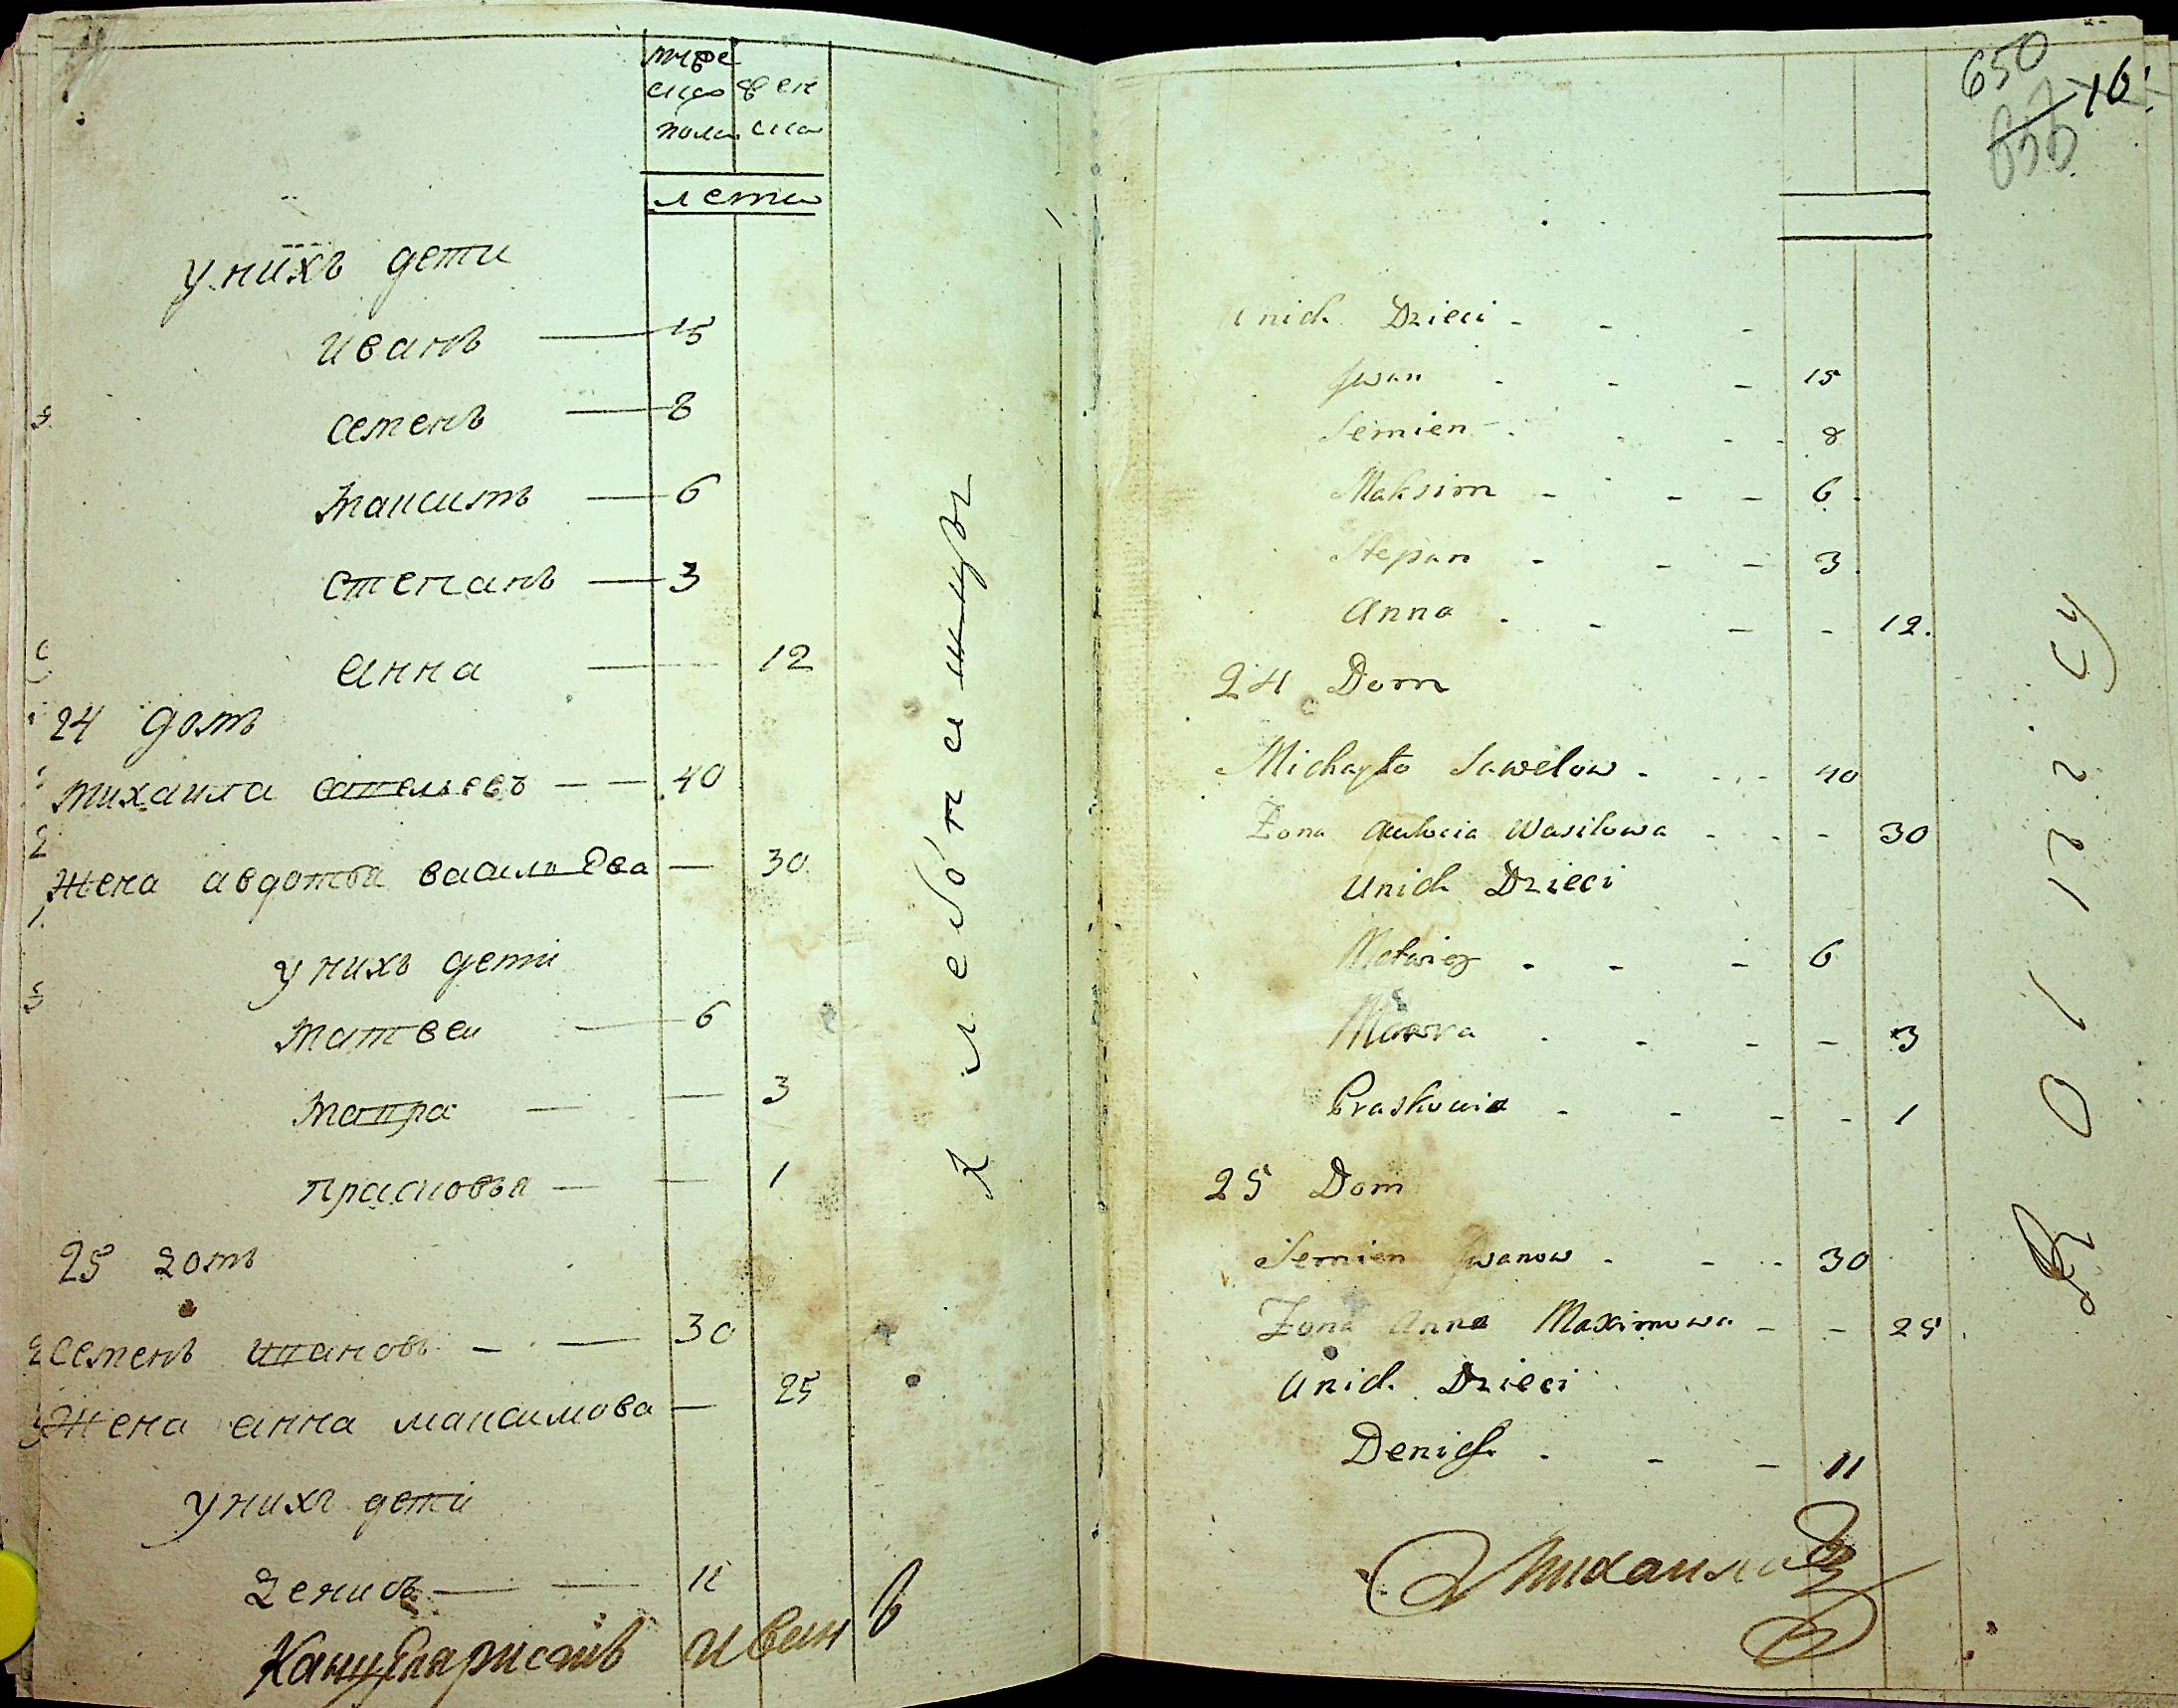 муже
ска
пола
жен
ска
лета
у нихъ дети
иванъ — 15
семенъ — 8
максимъ — 6
степанъ — 3
анна — 12
24 домъ
михаила савельевъ — — 40
жена авдотья васильева — 30
у нихъ дети
матвеи — 6
мавра — — 3
прасковья — — 1
25 домъ
семенъ ивановъ — — 30
жена анна максимова — 25
у нихъ дети
денисъ — — 11
Канцеляристъ иван
650
16
Unich Dzieci - - -
Jwan - - - 15
Semien - - - 8
Maksim - - - 6
Stepan - - - 3
Anna - - - - 12.
24 Dom
Michayło Sawelow - - - 40
Żona Wasilowa - - - 30
Unich Dzieci
Matwiey - - - 6
Mawra - - - - 3
Praskowia - - - - 1
25 Dom
Semien Jwanow - - - 30
Żona Anna Maximowa - - 25
Unich Dzieci
Denis - - - 11
михаила